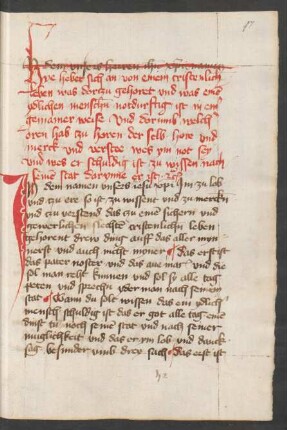 17
In dem namen unsers herren ihu xpi amen
Hye hebet sich an von einem cristenlich
leben was dorczu gehoret und was eine
ydlichen menschn notdurftig ist in ein
gemainer weise Und dorumb welch
oren hab zu horen der selb hore und
merck und verstee wes ym not sey
und wes er schuldig ist zu wissen nach
seine stat dorynne er ist
In dem namen unsers iesu xpi ym zu lob
und zu ere so ist zu wissent und zu merckn
und zu verstend das zu eine sichern und
gewerlichen slechte cristenlichn leben
gehorent drew ding auff das aller myn
nost und auch nicht myner das erst ist
das pater noster und das ave mar und die
sol man recht kunnen und sol sy alle tag
peten und sprechn yder man nach seinem
stat Wann du solt wissen das ein ydlich
mensch schuldig ist das er got alle tag eine
dinst tu noch seine stat und nach seiner
muglichkeit und das er ym lob und danck
sag besunder umb drey sach das erst ist